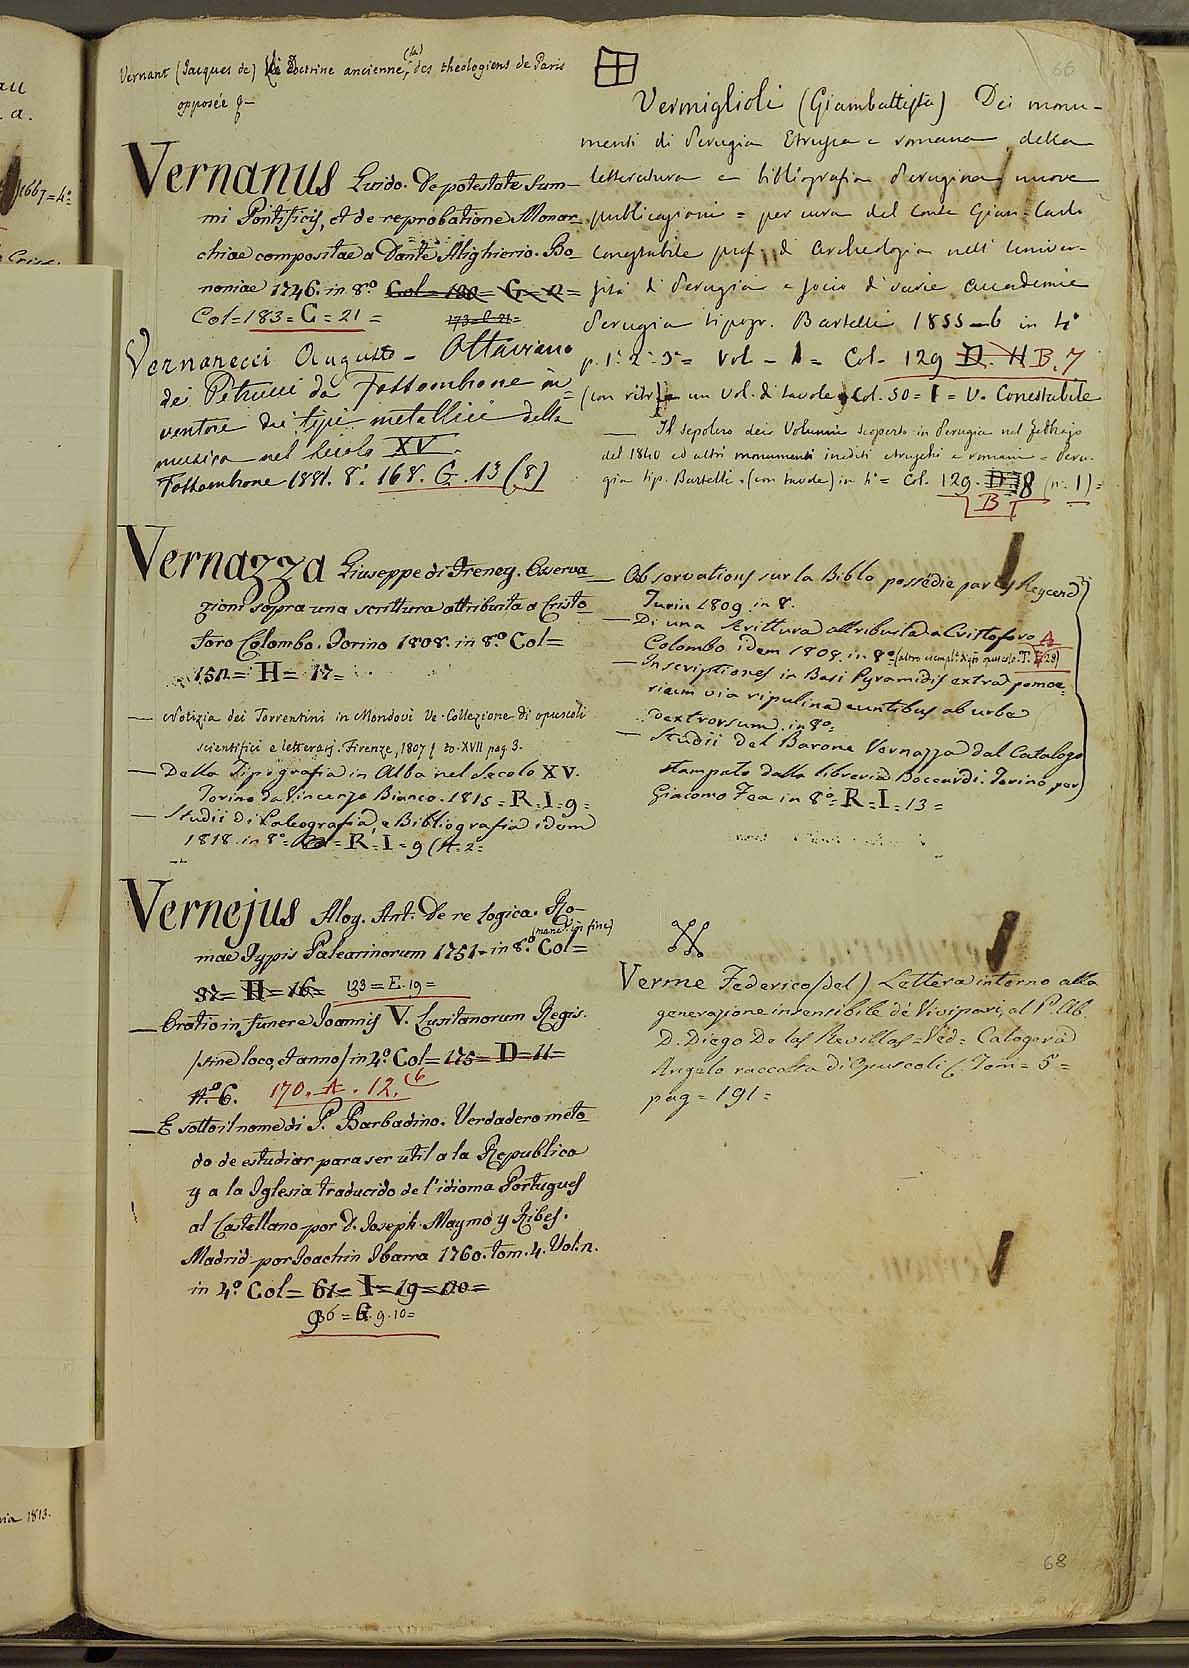 au
a.
1667=4.º
Vernant (Jacques de) La Doctrine ancienne (la) des theologiens de Paris
opposée &-
Vernanus Guido. De potestate Sum-
mi Pontificis, et de reprobatione Monar-
chiae compositae a Dante Alighierio. Bo-
noniae 1746. in 8.º Col=
Col=183=C=21=
173=C.21=
Vernarecci Augusto - Ottaviano
dei Petrucci da Fossombrone in-
ventore dei tipi metallici della
musica nel secolo XV.
Fossombrone 1881. 8.º 168. G. 13 (8)
Vernazza Giuseppe di Freney. Osserva-
zioni sopra una scrittura attribuita a Cristo-
foro Colombo. Torino 1808. in 8.º Col=
152=H=17=
— Notizia dei Torrentini in Mondovì Ve. Collezione di opuscoli
scientifici e letterarj. Firenze, 1807 to. XVII pag. 3.
— Della Tipografia in Alba nel Secolo XV.
Torino da Vincenzo Bianco. 1815=R.I.9=
— Studii di Paleografia, e Bibliografia idem
1818. in 8.º= R=I=9 (A=2=
Vernejus Aloy. Ant. De re Logica. Ro-
mae Typis Palearinorum 1751. in 8.º (manc. in fine) Col=
37=H=16= 133=E.19=
— Oratio in funere Joannis V. Lusitanorum Regis.
/sine loco, et anno/ in 4.º Col=175=D=11=
N.º 6. 170. A. 12. (6
— E sotto il nome di P. Barbadino. Verdadero meto-
do de estudiar para ser util a la Republica
y a la Iglesia traducido de l'idioma Portugues
al Castellano por D. Joseph Maymò y Ribes.
Madrid por Joachin Ibarra 1760. tom. 4. Vol. 2.
in 4.º Col=61=I=19=20=
96=G.9.10=
66
Vermiglioli (Giambattista) Dei monu-
menti di Perugia Etrusca e romana della
letteratura e bibliografia Perugina nuove
pubblicazioni = per cura del Conte Gian-Carlo
Conestabile prof. d'Archeologia nell'Univer-
sità di Perugia e socio di varie Accademie
Perugia tipogr. Bartelli 1855-6 in 4º
p. 1ª 2ª 3ª= Vol - 1= Col. 129 D. H B. 7
(con ritr. un Vol. di tavole, Col. 50=I=V. Conestabile
— Il sepolcro dei Volunni scoperto in Perugia nel febbrajo
del 1840 ed altri monumenti inediti etruschi e romani = Peru-
gia tip. Bartelli. (con tavole) in 4º= Col. 129. 8 (n. 1)=
B
— Observations sur la Bible possédée par les Reycend
Turin 1809. in 8.
— Di una scrittura attribuita a Cristoforo
Colombo idem 1808. in 8.º (altro esempl.
— Inscriptiones in Basi Pyramidis extra pomoe-
rium via ripulina euntibus ab urbe
dextrorsum. in 8.º
— Studii del Barone Vernazza dal Catalogo
stampato dalla libreria Boccardi. Torino per
Giacomo Fea in 8.º=R=I.13=
Verme Federico (del) Lettera intorno alla
generazione insensibile de' Vivipari, al P. Ab.
D. Diego De las Revillas=Ved=Calogerà
Angelo raccolta di Opuscoli &. Tom=5=
pag=191=
ia 1813.
68